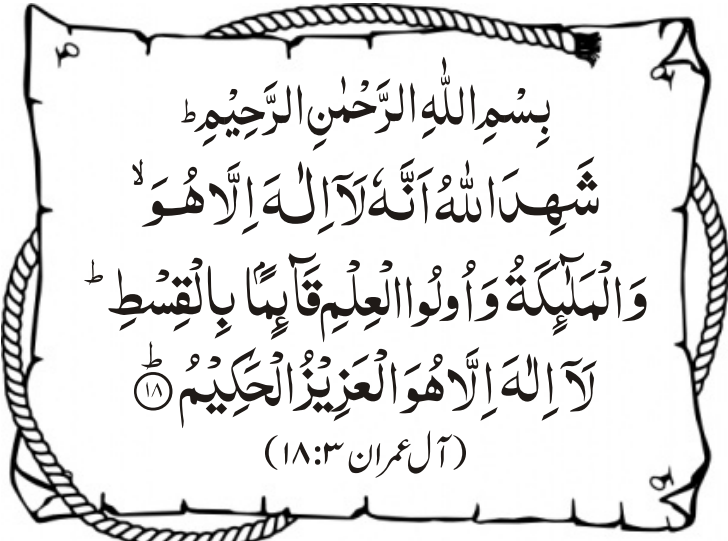 بِسْمِ اللّٰهِ الرَّحْمٰنِ الرَّحِيْمِ ؕ
شَهِدَ اللّٰهُ اَنَّهٗ لَآ اِلٰهَ اِلَّا هُوَ ۙ
وَالْمَلٰٓئِكَةُ وَاُولُوا الْعِلْمِ قَآئِمًۢا بِالْقِسْطِ ؕ
لَآ اِلٰهَ اِلَّا هُوَ الْعَزِيْزُ الْحَكِيْمُ ؕ ۝۱۸
(آل عمران ۱۸:۳)